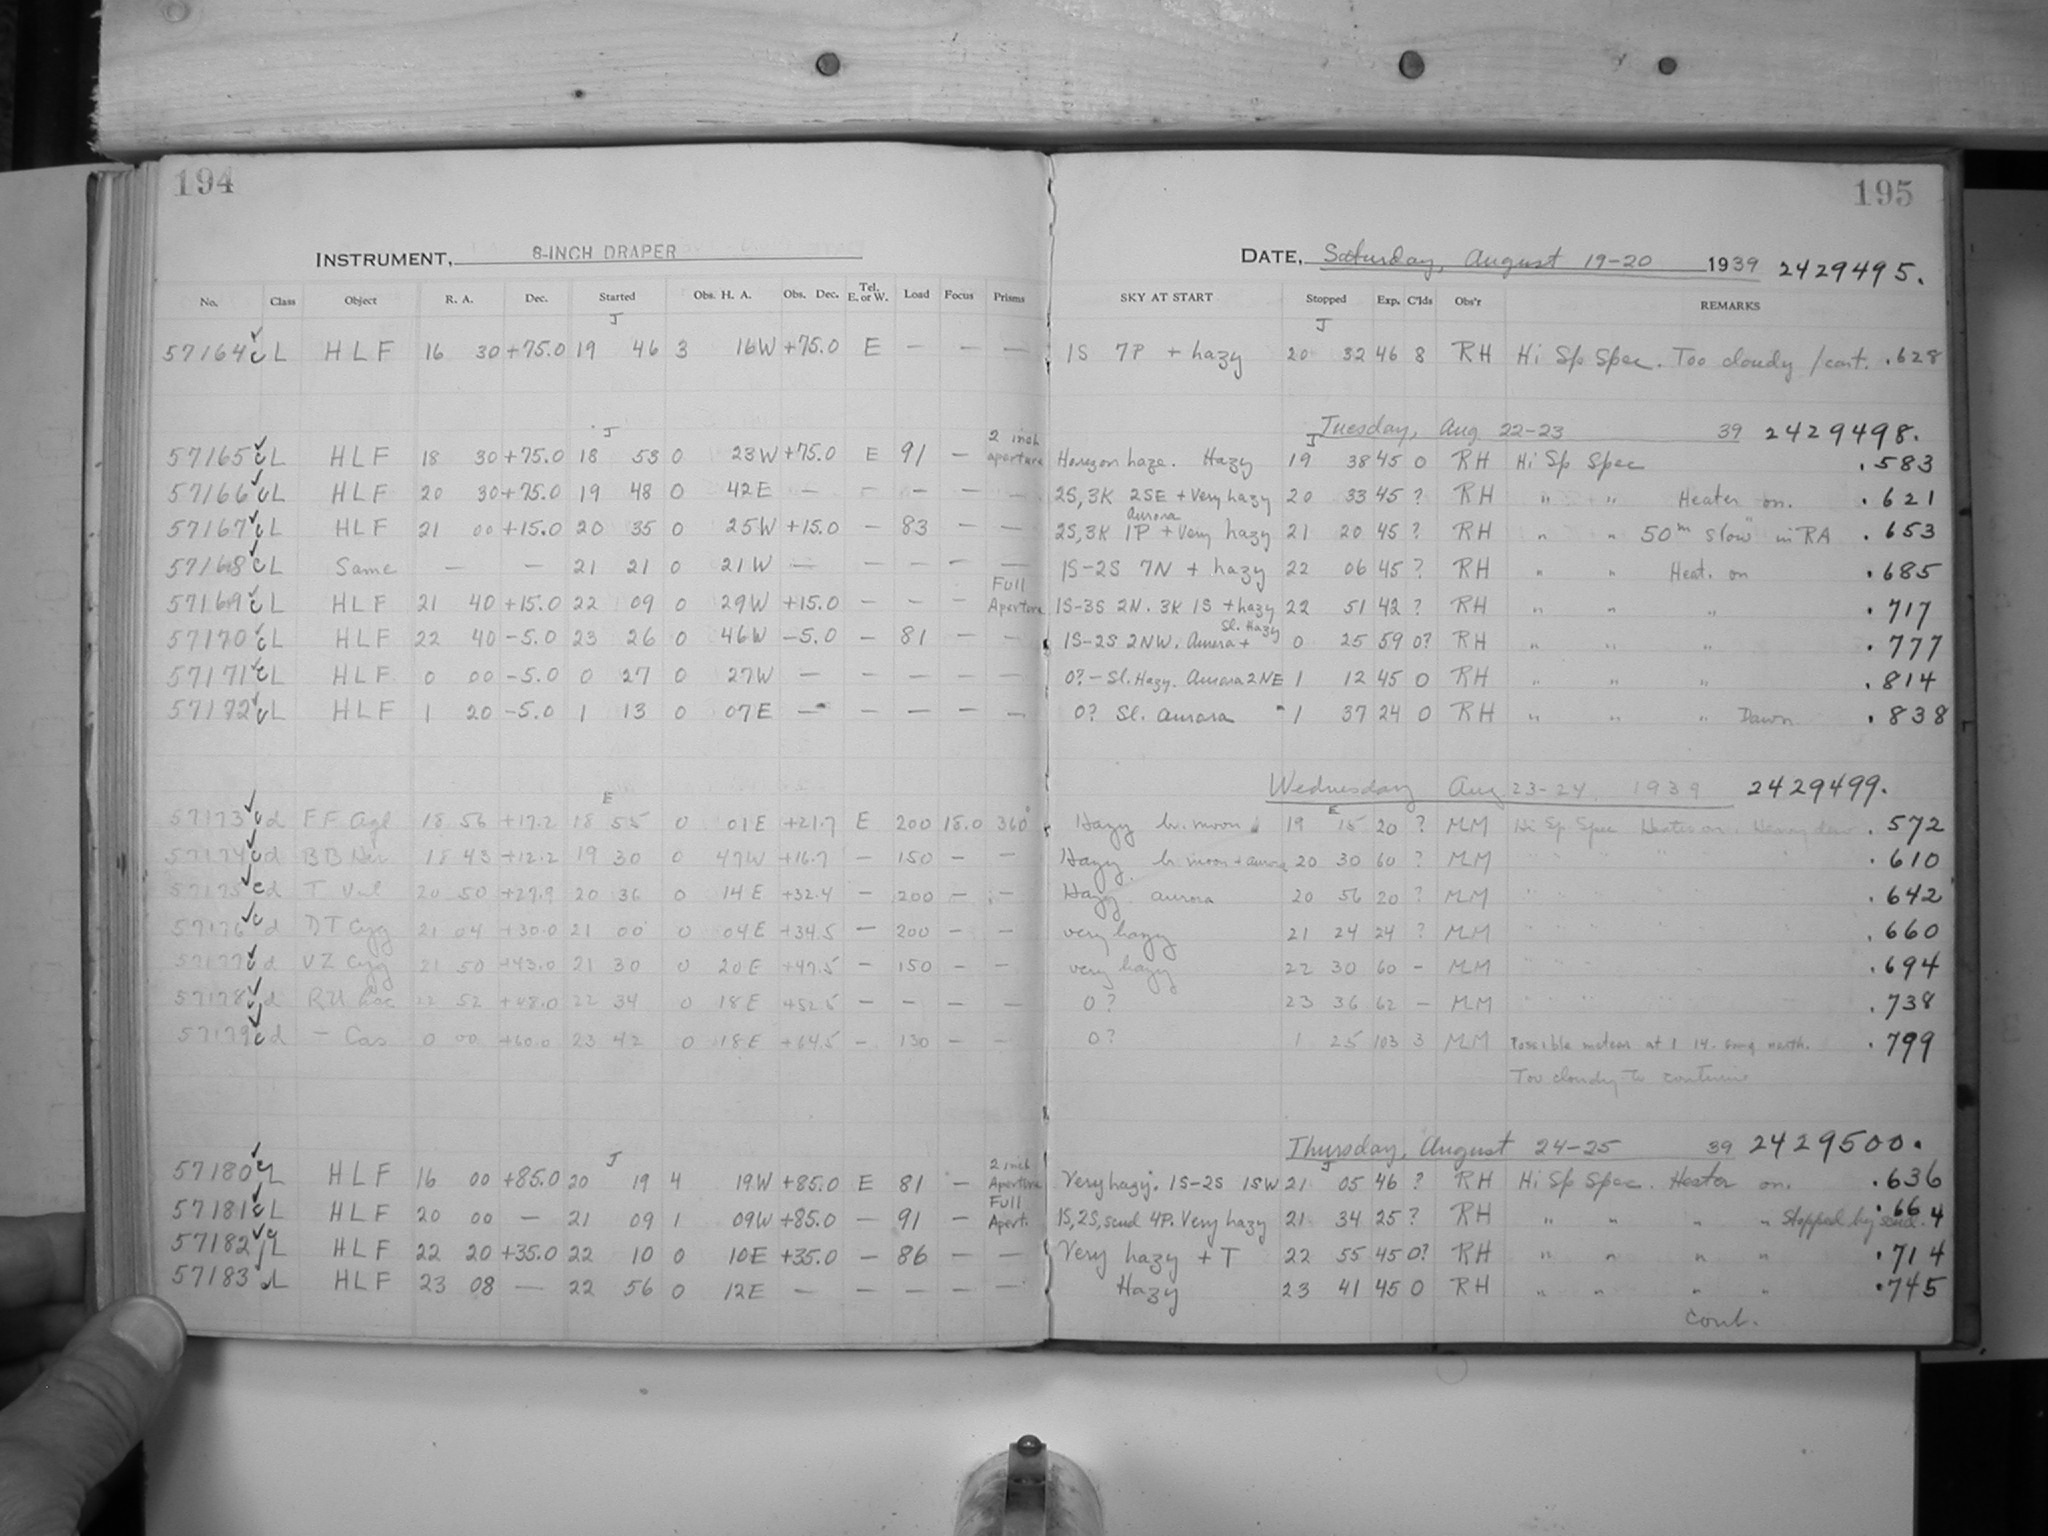 194
INSTRUMENT, 8-INCH DRAPER
No. Class Object R. A. Dec. Started Obs. H. A. Obs. Dec. Tel. E. or W. Load Focus Prisms
J
57164 c L H L F 16 30 +75.0 19 46 3 16W +75.0 E — — —
J
57165 c L H L F 18 30 +75.0 18 53 0 23W +75.0 E 91 — 2 inch aperture
57166 c L H L F 20 30 +75.0 19 48 0 42E — — — — —
57167 c L H L F 21 00 +15.0 20 35 0 25W +15.0 — 83 — —
57168 c L Same — — 21 21 0 21W — — — — —
57169 c L H L F 21 40 +15.0 22 09 0 29W +15.0 — — — Full Aperture
57170 c L H L F 22 40 -5.0 23 26 0 46W -5.0 — 81 — —
57171 c L H L F 0 00 -5.0 0 27 0 27W — — — — —
57172 c L H L F 1 20 -5.0 1 13 0 07E — — — — —
E
57173 c d FF Aql 18 56 +17.2 18 55 0 01E +21.7 E 200 18.0 360°
57174 c d BB Her 18 43 +12.2 19 30 0 47W +16.7 — 150 — —
57175 c d T Vul 20 50 +27.9 20 36 0 14E +32.4 — 200 — —
57176 c d DT Cyg 21 04 +30.0 21 00 0 04E +34.5 — 200 — —
57177 c d VZ Cyg 21 50 +43.0 21 30 0 20E +47.5 — 150 — —
57178 c d 52 +48.0 22 34 0 18E +52.5 — — — —
57179 c d — Cas 0 00 +60.0 23 42 0 18E +64.5 — 130 — —
J
57180 L H L F 16 00 +85.0 20 19 4 19W +85.0 E 81 — 2 inch Aperture
57181 c L H L F 20 00 — 21 09 1 09W +85.0 — 91 — Full Apert.
57182 L H L F 22 20 +35.0 22 10 0 10E +35.0 — 86 — —
57183 L H L F 23 08 — 22 56 0 12E — — — — —
195
DATE, Saturday, August 19-20 1939 2429495.
SKY AT START Stopped Exp. C'lds Obs'r REMARKS
J
1S 7P + hazy 20 32 46 8 RH Hi Sp Spec. Too cloudy / cont. .628
Tuesday, Aug 22-23 39 2429498.
J
Horizon haze. Hazy 19 38 45 0 RH Hi Sp Spec .583
2S, 3K 2SE + Very hazy 20 33 45 ? RH " " Heater on. .621
Aurora
2S, 3K 1P + Very hazy 21 20 45 ? RH " " 50m slow in RA .653
1S-2S 7N + hazy 22 06 45 ? RH " " Heat. on .685
1S-3S 2N. 3K 1S + hazy 22 51 42 ? RH " " " .717
Sl. Hazy
1S-2S 2NW. Aurora + 0 25 59 0? RH " " " .777
0? - Sl. Hazy. Aurora 2NE 1 12 45 0 RH " " " .814
0? Sl. aurora 1 37 24 0 RH " " " Dawn. .838
Wednesday Aug 23-24 1939 2429499.
E
Hazy br. moon 19 15 20 ? MM Hi Sp Spec Heater on. Heavy dew .572
Hazy. br. moon + aurora 20 30 60 ? MM .610
Hazy. aurora 20 56 20 ? MM .642
very hazy 21 24 24 ? MM .660
very hazy 22 30 60 — MM .694
0? 23 36 62 — MM .738
0? 1 25 103 3 MM Possible meteor at 1 14. going north. .799
Too cloudy to continue
Thursday, August 24-25 39 2429500.
J
Very hazy. 1S-2S 1SW 21 05 46 ? RH Hi Sp Spec. Heater on. .636
1S, 2S, scud 4P. Very hazy 21 34 25 ? RH " " " " Stopped by scud. .664
Very hazy + T 22 55 45 0? RH " " " " .714
Hazy 23 41 45 0 RH " " " " .745
cont.